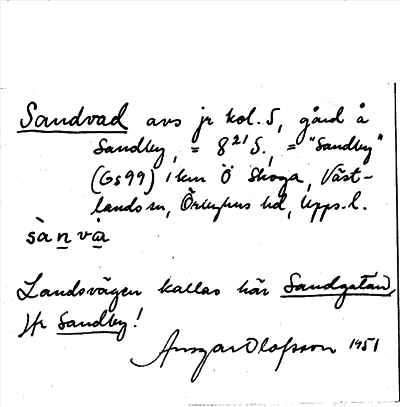 Sandvad avs jr kol. S, gård å
Sandby, = 8²¹ S, = "Sandby"
(Gs 99) 1 km Ö Skoga, Väst-
lands sn, Örbyhus hd, Upps. l.
sànva
Landsvägen kallas här Sandgatan,
Jfr Sandby!
Ansgar Olofsson 1951